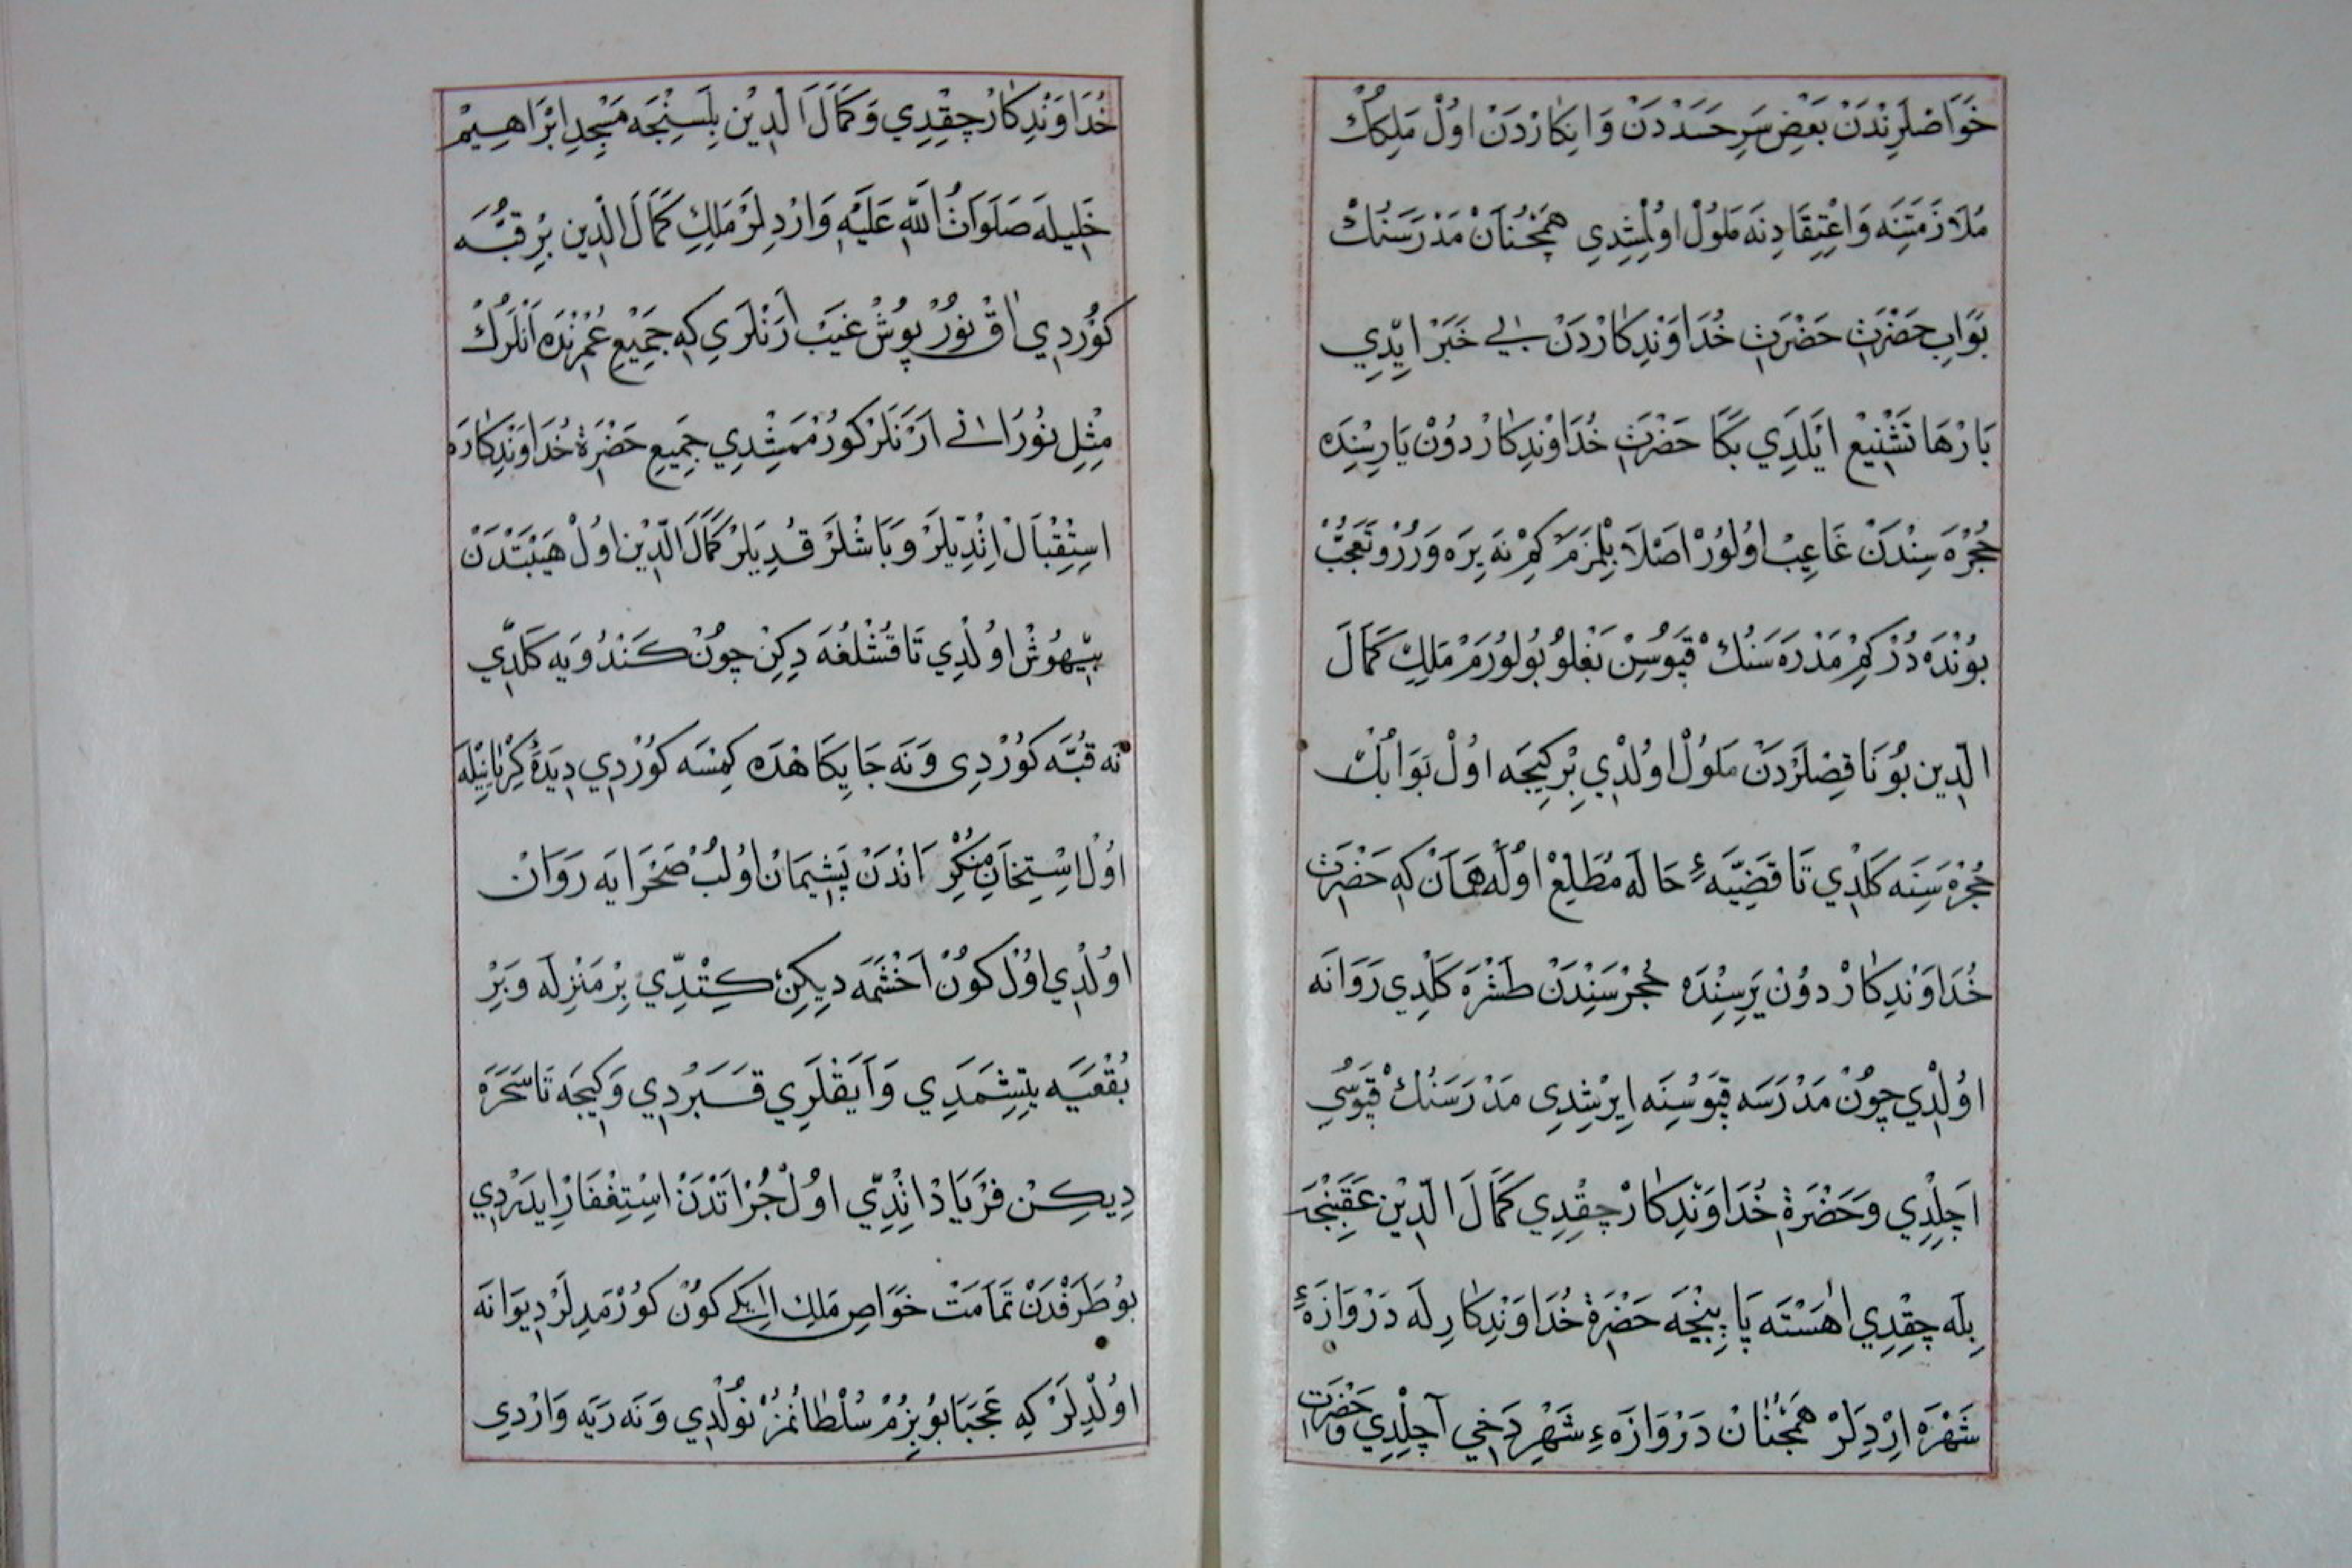 خَوَاصْلَرِنْدَنْ بَعْضِ سَرِ حَسَدْدَنْ وَانِكَارْدَنْ اوُلْ مَلِكُكْ
مُلَازَمَتِنَه وَاعْتِقَادِنَه مَلُولْ اوُلْمِشِدِي هَمْچُنَانْ مَدْرَسَنُكْ
بَوَّابِ حَضْرَتِ حَضْرَتِ خُدَاوَنْدِكَارْدَنْ بي خَبَرْ ايِدِّي
بَارْهَا تَشْنِيعْ ايَْلَدِي بَكَا حَضْرَتِ خُدَاوْنَدِكَارْ دوُنْ يَارِيسِنْدَه
حُجْرَه سِنْدَنْ غَاعِبْ اوُلوُرْ اصَْلَا بِلْمَزَمْ كِمْ نَه يِرَه وَرُرْ وُتَعَجُّبْ
بوُنْدَه دُرْ كِمْ مَدْرَه سَنُكْ قَپوُسِنْ بَغْلوُ بُولوُرَمْ مَلِكِ كَمَالَ
الدِّين بوُ نَاقِصْلَرْدَنْ مَلوُلْ اوُلْدِي بِرْ كِيجَه اوُلْ بَوَابُكْ
حُجْرَه سَنِه كَلْدِي تَا قَضِيَّهءِ حَالَه مُطَّلِعْ اوُلَه هَمَانْ كِه حَضْرَتِ
خُدَاوَنْدِكَارْ دوُنْ يَرِسِنْدَه حُجْرَسَنِدَنْ طَشْرَه كَلْدِي رَوَانَه
اوُلْدِي چوُنْ مَدْرَسَه قَپوُسُنَه ايِرْشِدِي مَدْرَسَنُكْ قَپوُسُي
اَچِلْدِي وَحَضْرَةِ خُدَاوَنْدِكَارْ چِقْدِي كَمَالَ الدِّيْن عَقِبِنْجَه
بِلَه چِقْدِي اهَسْتَه پَاپِينْجَه حَضْرَةِ خُدَاوَنْدِكَارِلَه دَرْوَازَهءِ
شَهْرَه ارِْدِلَرْ هَمْچُنَانْ دَرْوَازَهءِ شَهْرِ دَخِي آچِلْدِي وَحَضْرَتِ
خُدَاوَنْدِكَارْ چِقْدِي وَكَمَالَ الدِّيْن بِلَسِنْجَه مَسْجِدِ ابْرَاهِيمْ
خَلِيلَه صَلَوَاتُ اللهِ عَلَيْهِ وَارْدِلَرْ مَلِكِ كَمَالَ الدِّين بِرْ قُبَّه
كوُرْدِي اقْ نوُرْ پوُشْ غَيبْ ارََنْلَرِي كِه جَمِيْعِ عُمْرِنْدَه اَنْلَرُكْ
مِثْلِ نوُرَاني ارََنَلَرْ كوُرْمَمِشْدِي جَمِيعِ حَضْرَةِ خُدَاوَنْدِكَارَه
اسِتِقْبَالْ اتِْدِيلَرْ وَبَاشْلَرْ قُدِيَلَرْ كَمَالَ الدِّيْن اوُلْ هَيْبَتَدَنْ
بِيهوُشْ اوُلْدِي تَا قُشْلُغَه دِكِنْ چوُنْ كَنْدُويَه كَلْدِي
نَه قُبَّه كوُرْدِي وَنَه جَايِكَاهْدَه كِمْسَه كوُرْدِي دِيَدَهٔ كِرْيَانِيلَه
اوُلْ اسِْتِخَانِ مُنْكِرْ اَنْدَنْ پَشِيمَانْ اوُلُبْ صَحْرَايَه رَوَانْ
اوُلْدِي اوُلْ كوُنْ اَخْشَمَه دِيكِنْ كِتْدِّي بِرْ مَنْزِلَه وَبِرْ
بُقْعَيَه يِتِشْمَدِي وَاَيَقْلَرِي قَبَرْدِي وَكِيجَه تَا سَحَرَه
دِيكِنْ فَرْيَادْ اتِْدِي اوُلْ جُرْاتَدَنْ اسْتِغْفَارْ ايِدَرْدِي
بوُ طَرَفْدَنْ تَمَامَتْ خَوَاصِ مَلِك ايكي كوُنْ كوُرْمَدِلَرْ دِيوَانَه
اوُلْدِلَرْ كِه عَجَبَا بوُ بِزُمْ سُلْطَانُمُزْ نوُلْدِي وَنَه رَيَه وَارْدِي